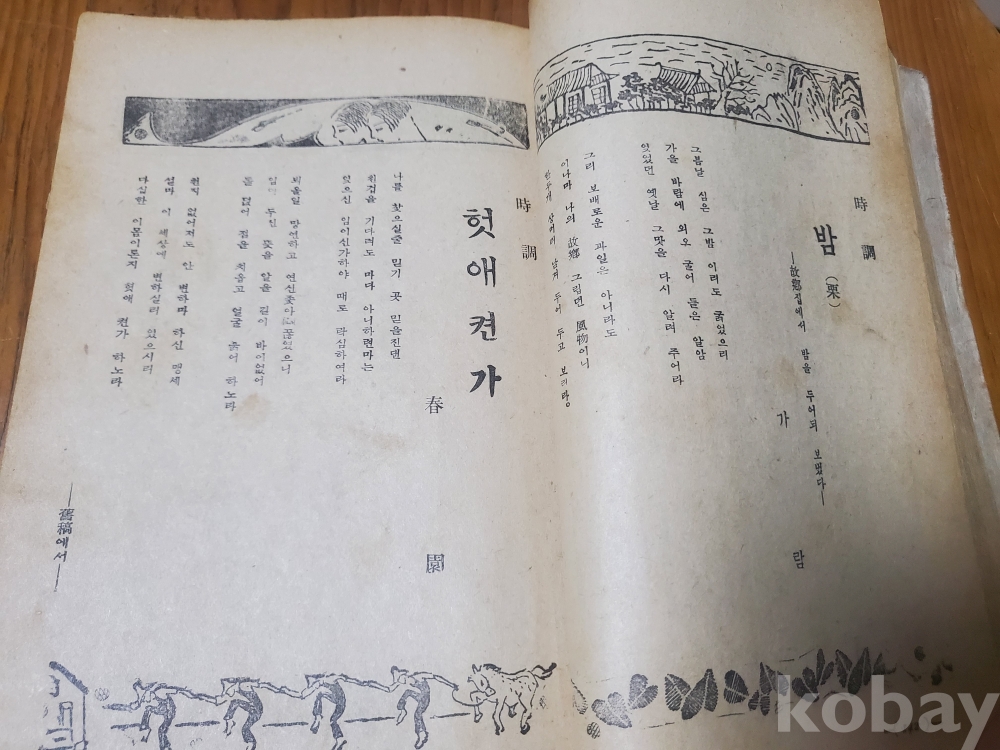 時調
밤 (栗)
—故鄕집에서 밤을 두어되 보냈다—
가람
그봄날 심은 그밤 이리도 굵었으리
가을 바람에 외우 굴어 들은 알암
잊었던 옛날 그맛을 다시 알려 주어라
그리 보배로운 과일은 아니라도
이나마 나의 故鄕 그림면 風物이니
한두개 남겨 두어 두고 보리라
時調
헛애켠가
春園
나를 찾으실줄 믿기 곳 믿을진댄
천겁을 기다려도 마다 아니하련마는
잊으신 임이신가하야 때로 탁심하여라
뵈올일 망연하고 연신좇아 끊었으니
둘 곳 없어 하노라
현직 없어져도 안 변하마 하신 맹세
설마 이 세상에 변하실리 있으시리
다심한 이몸이론지 헛애 켠가 하노라
—舊稿에서—
kobay